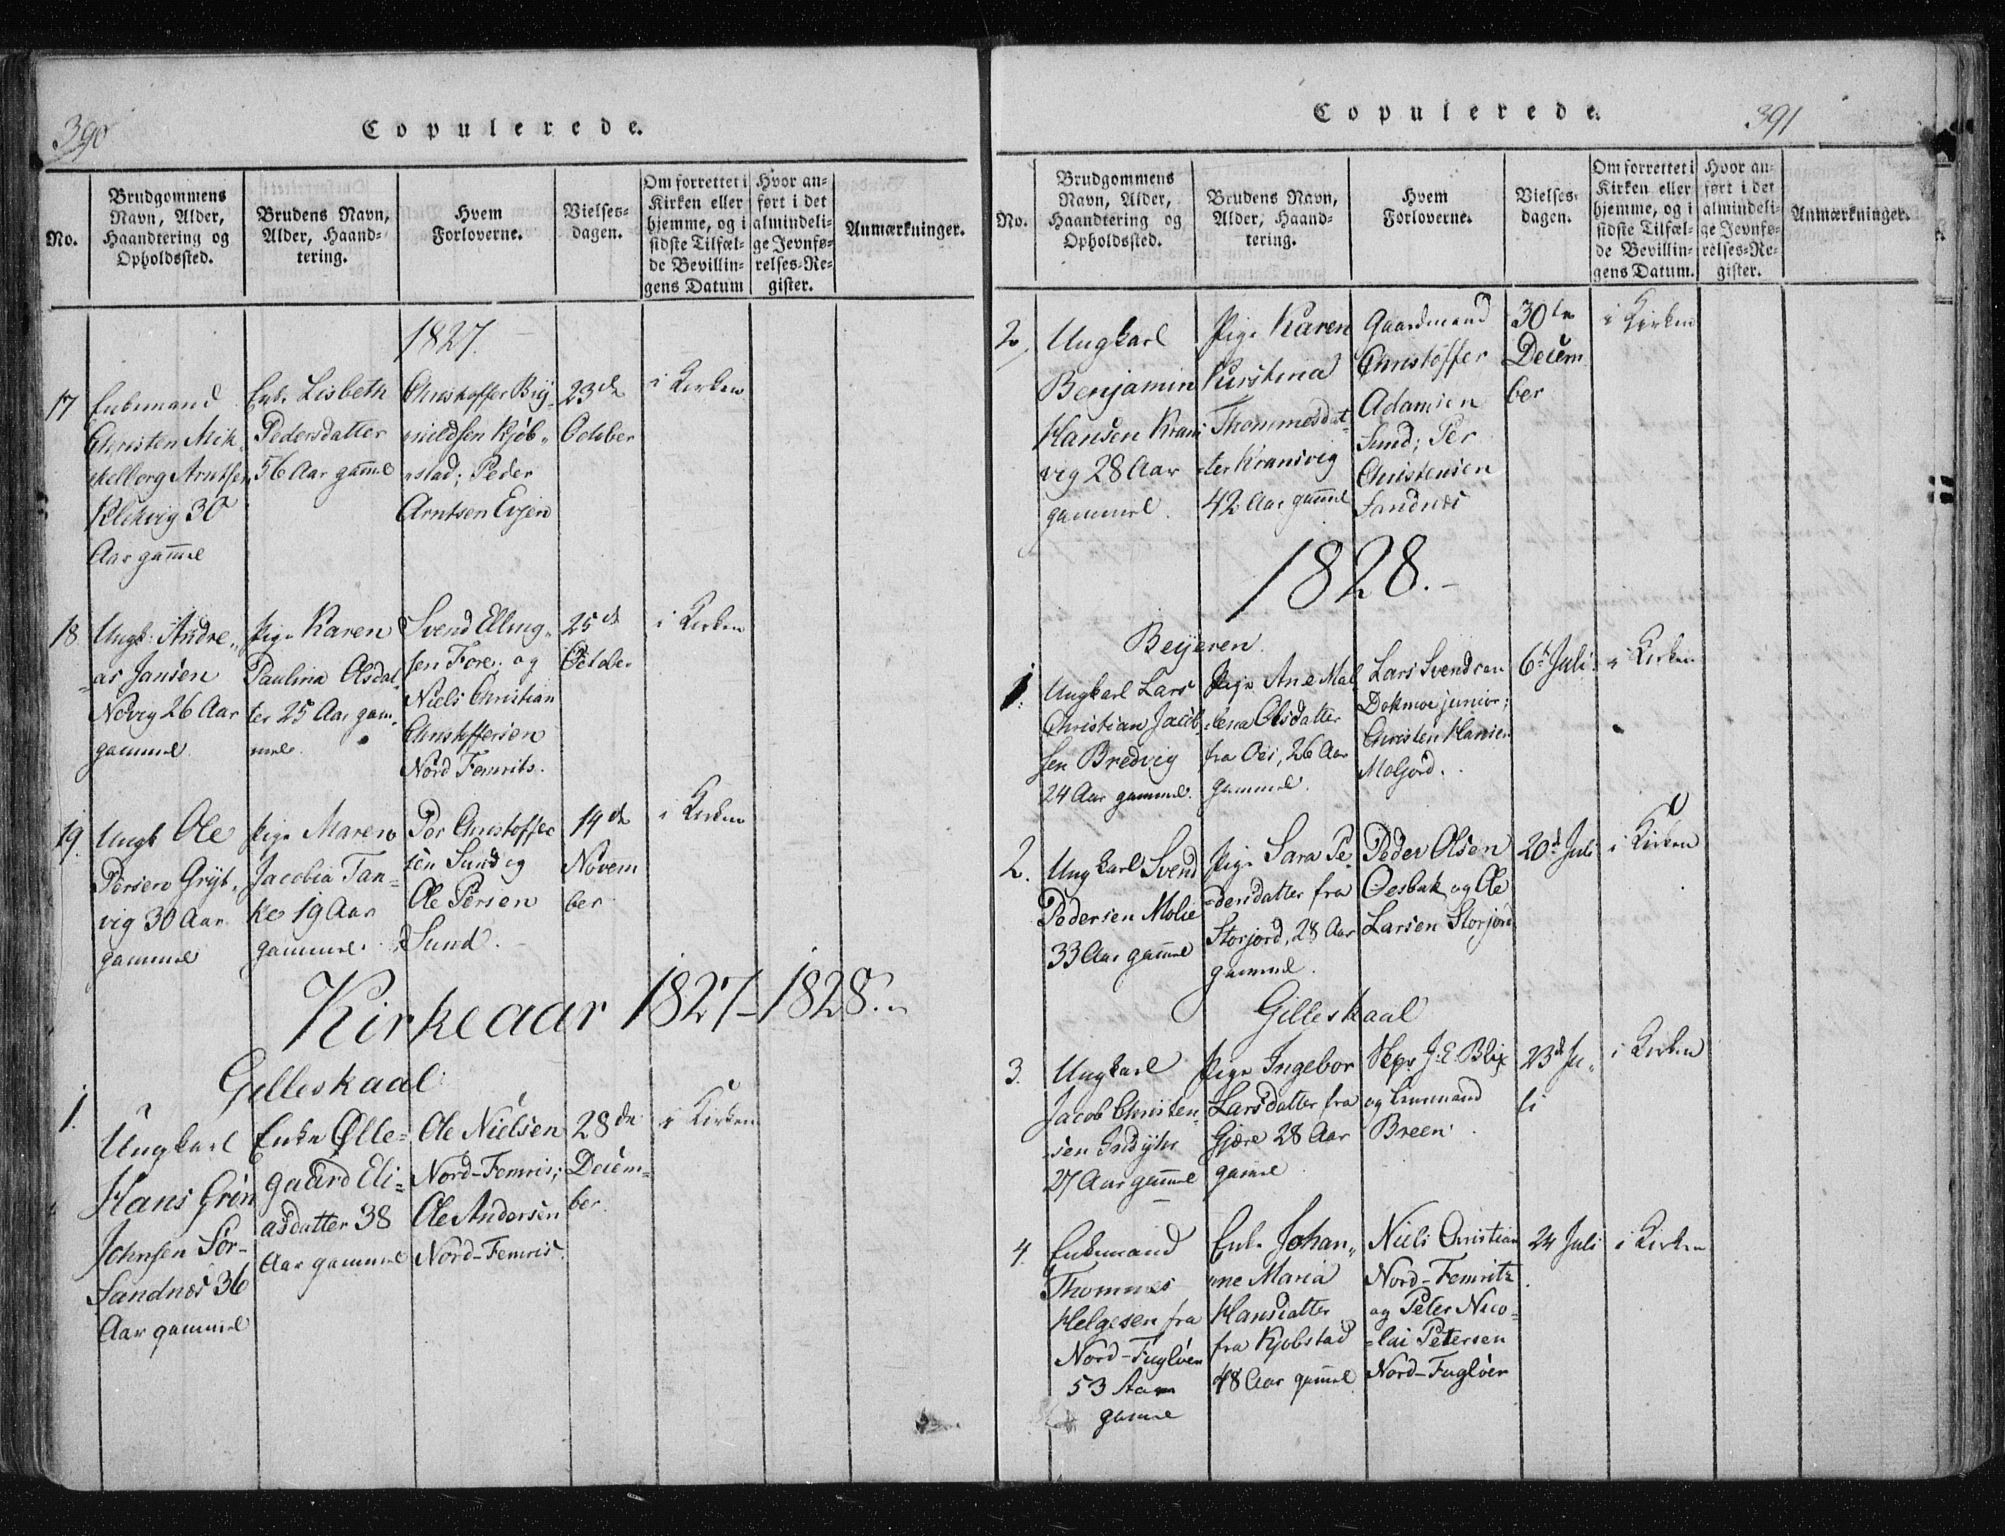 390
Copulerede.
No.
Brudgommens
Navn, Alder,
Haandtering og
Opholdssted.
Brudens Navn,
Alder, Haand-
tering.
Hvem
Forloverne.
Vielses-
dagen.
Om forrettet i
Kirken eller
hjemme, og i
sidste Tilfæl-
de Bevillin-
gens Datum
Hvor an-
ført i det
almindeli-
ge Jevnfø-
relses-Re-
gister.
Anmærkninger.
1827.
17
Enkemand
Christen Mik-
kelborg Arntsen
Klekvig 30
Aar gam̄el
Enke Lisbeth
Pedersdatter
56 Aar gam̄el
Christoffer Bry-
nildsen Kjöb-
stad; Peder
Arntsen Evjen
23de
October
i Kirken
18
Ungk: Andre-
as Jansen
Novig 26 Aar
gammel
Pige Karen
Paulina Olsdat
ter 25 Aar gam-
mel.
Svend Elling-
sen Fore og
Niels Christian
Christoffersen
Nord Femrits.
25de
October
i Kirken
19.
Ungk Ole
Persen Gryt-
vig 30 Aar
gammel
Pige Maren
Jacobia Tan-
ke 19 Aar
gammel.
Per Christoffer
sen Sund og
Ole Persen
Sund.
19de
Novem
ber
i Kirken
Kirkeaar 1827-1828.
Gilleskaal
1.
Ungkarl
Hans Grön
Johnsen Sör-
Sandnæs 36
Aar gammel
Enke Ølle-
gaard Eli-
asdatter 38
Aar gammel
Ole Nielsen
Nord-Femris;
Ole Andersen
Nord-Femris.
28de
Decem-
ber.
i Kirken
Copulerede.
391
No.
Brudgommens
Navn, Alder,
Haandtering og
Opholdssted.
Brudens Navn,
Alder, Haand-
tering.
Hvem
Forloverne.
Vielses-
dagen.
Om forrettet i
Kirken eller
hjemme, og i
sidste Tilfæl-
de Bevillin-
gens Datum.
Hvor an-
ført i det
almindeli-
ge Jevnfø-
relses-Re-
gister.
Anmærkninger.
2
Ungkarl
Benjamin
Hansen Krans
vig 28 Aar
gammel.
Pige Karen
Kirstina
Thommesdat
ter Kransvig
42 Aar gam̄el
Gaardmand
Christoffer
Adamsen
Sund; Per
Christensen
Sandnæs
30te
Decem
ber
i Kirken
1828.
Beyeren.
1.
Ungkarl Lars
Christian Jacob
sen Bredvig
24 Aar gammel.
Pige Ane Mal
lena Olsdatter
fra Oes, 26 Aar
gammel.
Lars Svendsen
Dokmoe junior;
Christen Hansen
Moljord.
6te Juli
i Kirken
2.
Ungkarl Svend
Pedersen Molie
33 Aar gam̄el
Pige Sara Pe
dersdatter fra
Storjord, 28 Aar
gammel.
Peder Olsen
Oesbak og Ole
Larsen Storjord
20de Juli
i Kirken
Gilleskaal
3.
Ungkarl
Jacob Christen-
sen Indyhr
27 Aar gam̄el
Pige Ingebor
Larsdatter fra
Gjære 28 Aar
gam̄el
Hr. J. E. Blix
og Linmand
Breen.
23de Ju-
li
i Kirken
4.
Enkemand
Thommes
Helgesen fra
Nord-Fugløen
53 Aar
gam̄el
Enke Johan-
ne Maria
Hansdatter
fra Kjobstad
48 Aar gam̄el
Niels Christian
Nord-Femritz
og Peter Nico-
lai Petersen
Nord-Fugløen
24 Juli
i Kirken